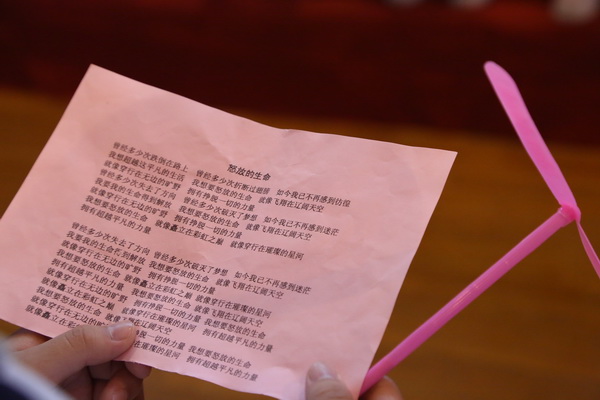 怒放的生命
曾经多少次跌倒在路上 曾经多少次折断过翅膀 如今我已不再感到彷徨
我想超越这平凡的生活 我想要怒放的生命 就像飞翔在辽阔天空
就像穿行在无边的旷野 拥有挣脱一切的力量
曾经多少次失去了方向 曾经多少次破灭了梦想 如今我已不再感到迷茫
我要我的生命得到解放 我想要怒放的生命 就像飞翔在辽阔天空
就像穿行在无边的旷野 拥有挣脱一切的力量
我想要怒放的生命 就像矗立在彩虹之巅 就像穿行在璀璨的星河
拥有超越平凡的力量
曾经多少次失去了方向 曾经多少次破灭了梦想 如今我已不再感到迷茫
我要我的生命得到解放 我想要怒放的生命 就像飞翔在辽阔天空
就像穿行在无边的旷野 拥有挣脱一切的力量
我想要怒放的生命 就像矗立在彩虹之巅 就像穿行在璀璨的星河
拥有超越平凡的力量 我想要怒放的生命 就像飞翔在辽阔天空
就像穿行在无边的旷野 拥有挣脱一切的力量 我想要怒放的生命
就像矗立在彩虹之巅 就像穿行在璀璨的星河 拥有超越平凡的力量
就像飞翔在辽阔天空
就像穿行在无边的旷野 挣脱一切的力量 我想要怒放的生命
就像矗立在彩虹之巅 在璀璨的星河 拥有超越平凡的力量